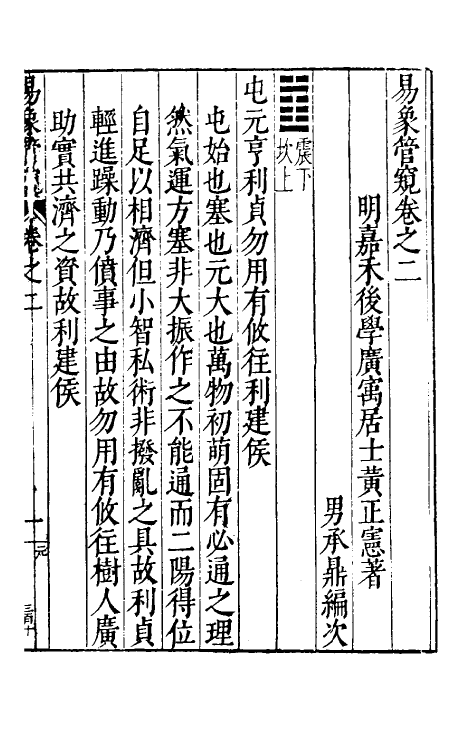 易象管窺卷之二
明嘉禾後學廣寓居士黃正憲著
男承鼎編次
震下
坎上
屯元亨利貞勿用有攸往利建侯
屯始也塞也元大也萬物初萌固有必通之理
然氣運方塞非大振作之不能通而二陽得位
自足以相濟但小智私術非撥亂之具故利貞
輕進躁動乃僨事之由故勿用有攸往樹人廣
助實共濟之資故利建侯
易象管窺
卷之二